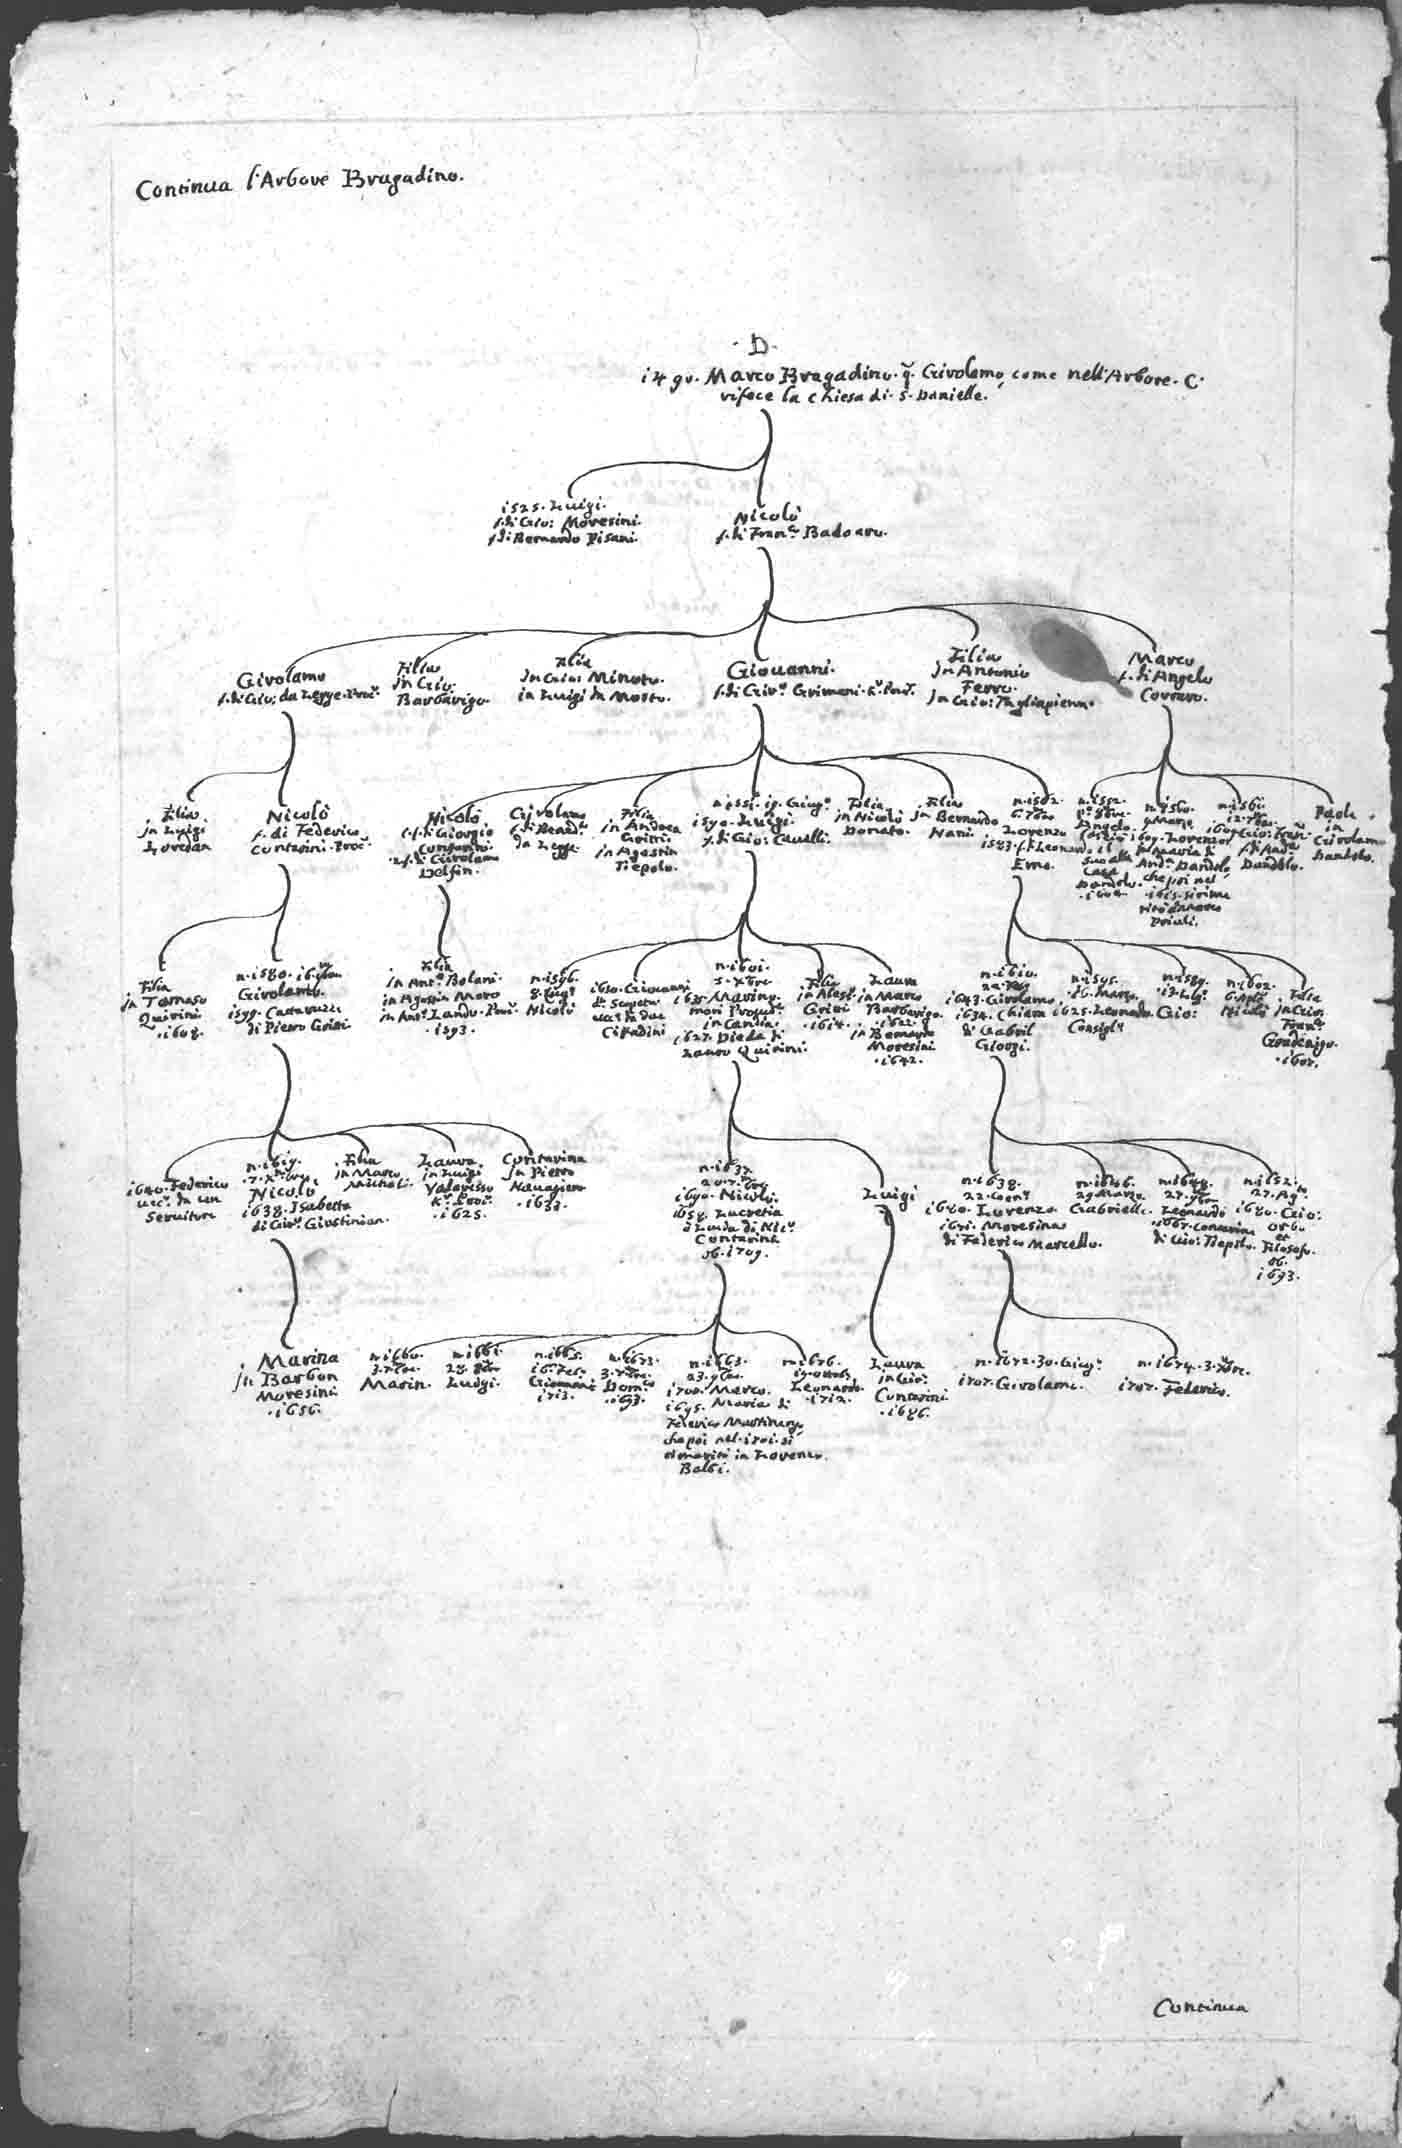 Continua l'Arbore Bragadino.
D.
1490. Marco Bragadino. q. Girolamo, come nell'Arbore. C.
rifece la chiesa di. S. Danielle.
1525. Luigi.
f. di Gio: Moresini.
f. di Bernardo Pisani.
Nicolò
f. di Franc.º Badoaro.
Girolamo
f. di Gio: da Lezze. Proc.r
Filia
Jn Gio:
Barbarigo.
Filia
Jn Gio: Minoto.
in Luigi da Mosto.
Giouanni.
f. di Gir.º Grimani. K.r Proc.r
Filia
Jn Antonio
Ferro.
Jn Gio: Tagliapiera.
Marco
f. di Angelo
Corraro.
Filia
Jn Luigi
Loredan
Nicolò
f. di Federico
Contarini. Proc.r
Nicolò
f. di Giorgio
Contarini.
2. f. di Girolamo
Delfin.
Girolamo
f. di Bened.to
da Lezze.
Filia
in Andrea
Gritti.
in Agostin
Tiepolo.
n. 1551. 19. Giug.º
1590. Luigi.
f. di Gio: Cauelli.
Filia
in Nicolò
Donato.
Filia
Jn Bernardo
Nani.
n. 1562.
Lorenzo
1583. f. Leonardo
Emo.
n. 1552.
Angelo
Casa
Dandolo.
n. 1560.
9 Marzo
1609. Lorenzo
And.ª Dandolo,
che poi nel
1615. si rima
ritò in Marco
Priuli.
n. 1561.
Dandolo.
Paola
in
Girolamo
Dandolo.
Filia
in Tomaso
Quirini
. 1608.
n. 1580. 16
Girolamo.
1599. Cattaruzza
di Pietro Grini
Filia
in Ant.º Bolani.
in Agostin Moro
in Ant.º Lando. Proc.r
. 1593.
n. 1596.
8. Lug.º
Nicolò
1610. Giouanni
di Scopeta
ucc.º da due
Cittadini
n. 1601.
5. Xbre
1635. Marino.
morì Proued.r
in Candia.
1627. Pieda di
Lauro Quirini.
Filia
in Aless.º
Grini
. 1614.
Laura
in Marco
Barbarigo.
. 1622.
in Bernardo
Moresini
. 1642.
n. 1610.
1643. Girolamo
1634. Chiara
di Gabriel
Giorgi.
n. 1595.
16. Marzo.
1625. Leonardo
Consigl.r
n. 1589.
Gio:
n. 1602.
Nicolò
Filia
in Gio:
Franc.º
Gradenigo.
. 1607.
1640. Federico
ucc.º da un
Seruitore
n. 1619.
Nicolò
1638. Isabetta
di Gir.º Giustinian.
Filia
in Marco
Michiel.
Laura
in Luigi
Valaresso
K.r Proc.r
. 1625.
Contarina
Jn Pietro
Nauagiero
. 1633.
n. 1637.
1690. Nicolò.
1658. Lucretia
di Nic.º
Contarini.
ob. 1709.
Luigi
n. 1638.
22. Gen.º
1680. Lorenzo
1671. Moresina
di Federico Marcello.
n. 1646.
29 Marzo
Gabriel.
n. 1648.
Leonardo
1667. Contarina
di Gio: Tiepolo.
n. 1652.
27. Ag.to
1680. Gio:
Orbo
et
Filosofo.
ob.
1693.
Marina
Jn Barbon
Moresini
. 1656.
n. 1660.
Marin.
n. 1661.
Luigi.
n. 1665.
Giouanni
1713.
n. 1673.
Dom.co
. 1693.
n. 1663.
23. 9bre.
1700. Marco.
1695. Maria di
Federico Martinengo,
che poi nel. 1701. si
rimaritò in Lorenzo
Balbi.
n. 1676.
Leonardo.
. 1712.
Laura
in Gio:
Contarini
. 1686.
n. 1672. 30. Giug.º
1707. Girolamo.
n. 1674. 3. 7bre.
1707. Federico.
Continua